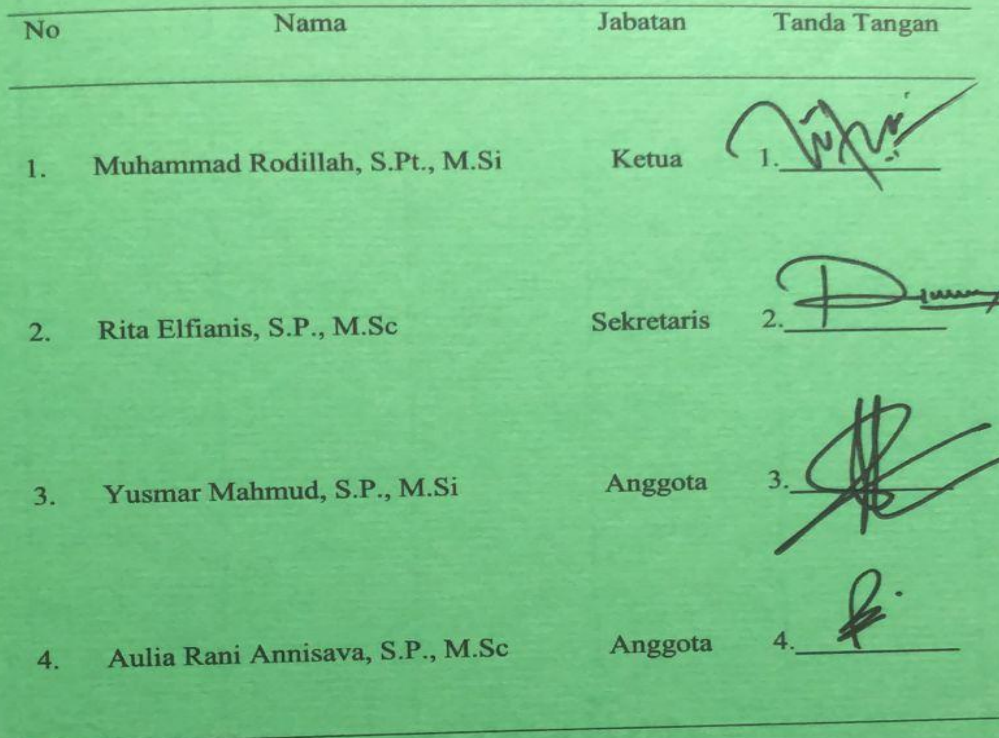 No Nama Jabatan Tanda Tangan
1. Muhammad Rodillah, S.Pt., M.Si Ketua 1.
2. Rita Elfianis, S.P., M.Sc Sekretaris 2.
3. Yusmar Mahmud, S.P., M.Si Anggota 3.
4. Aulia Rani Annisava, S.P., M.Sc Anggota 4.